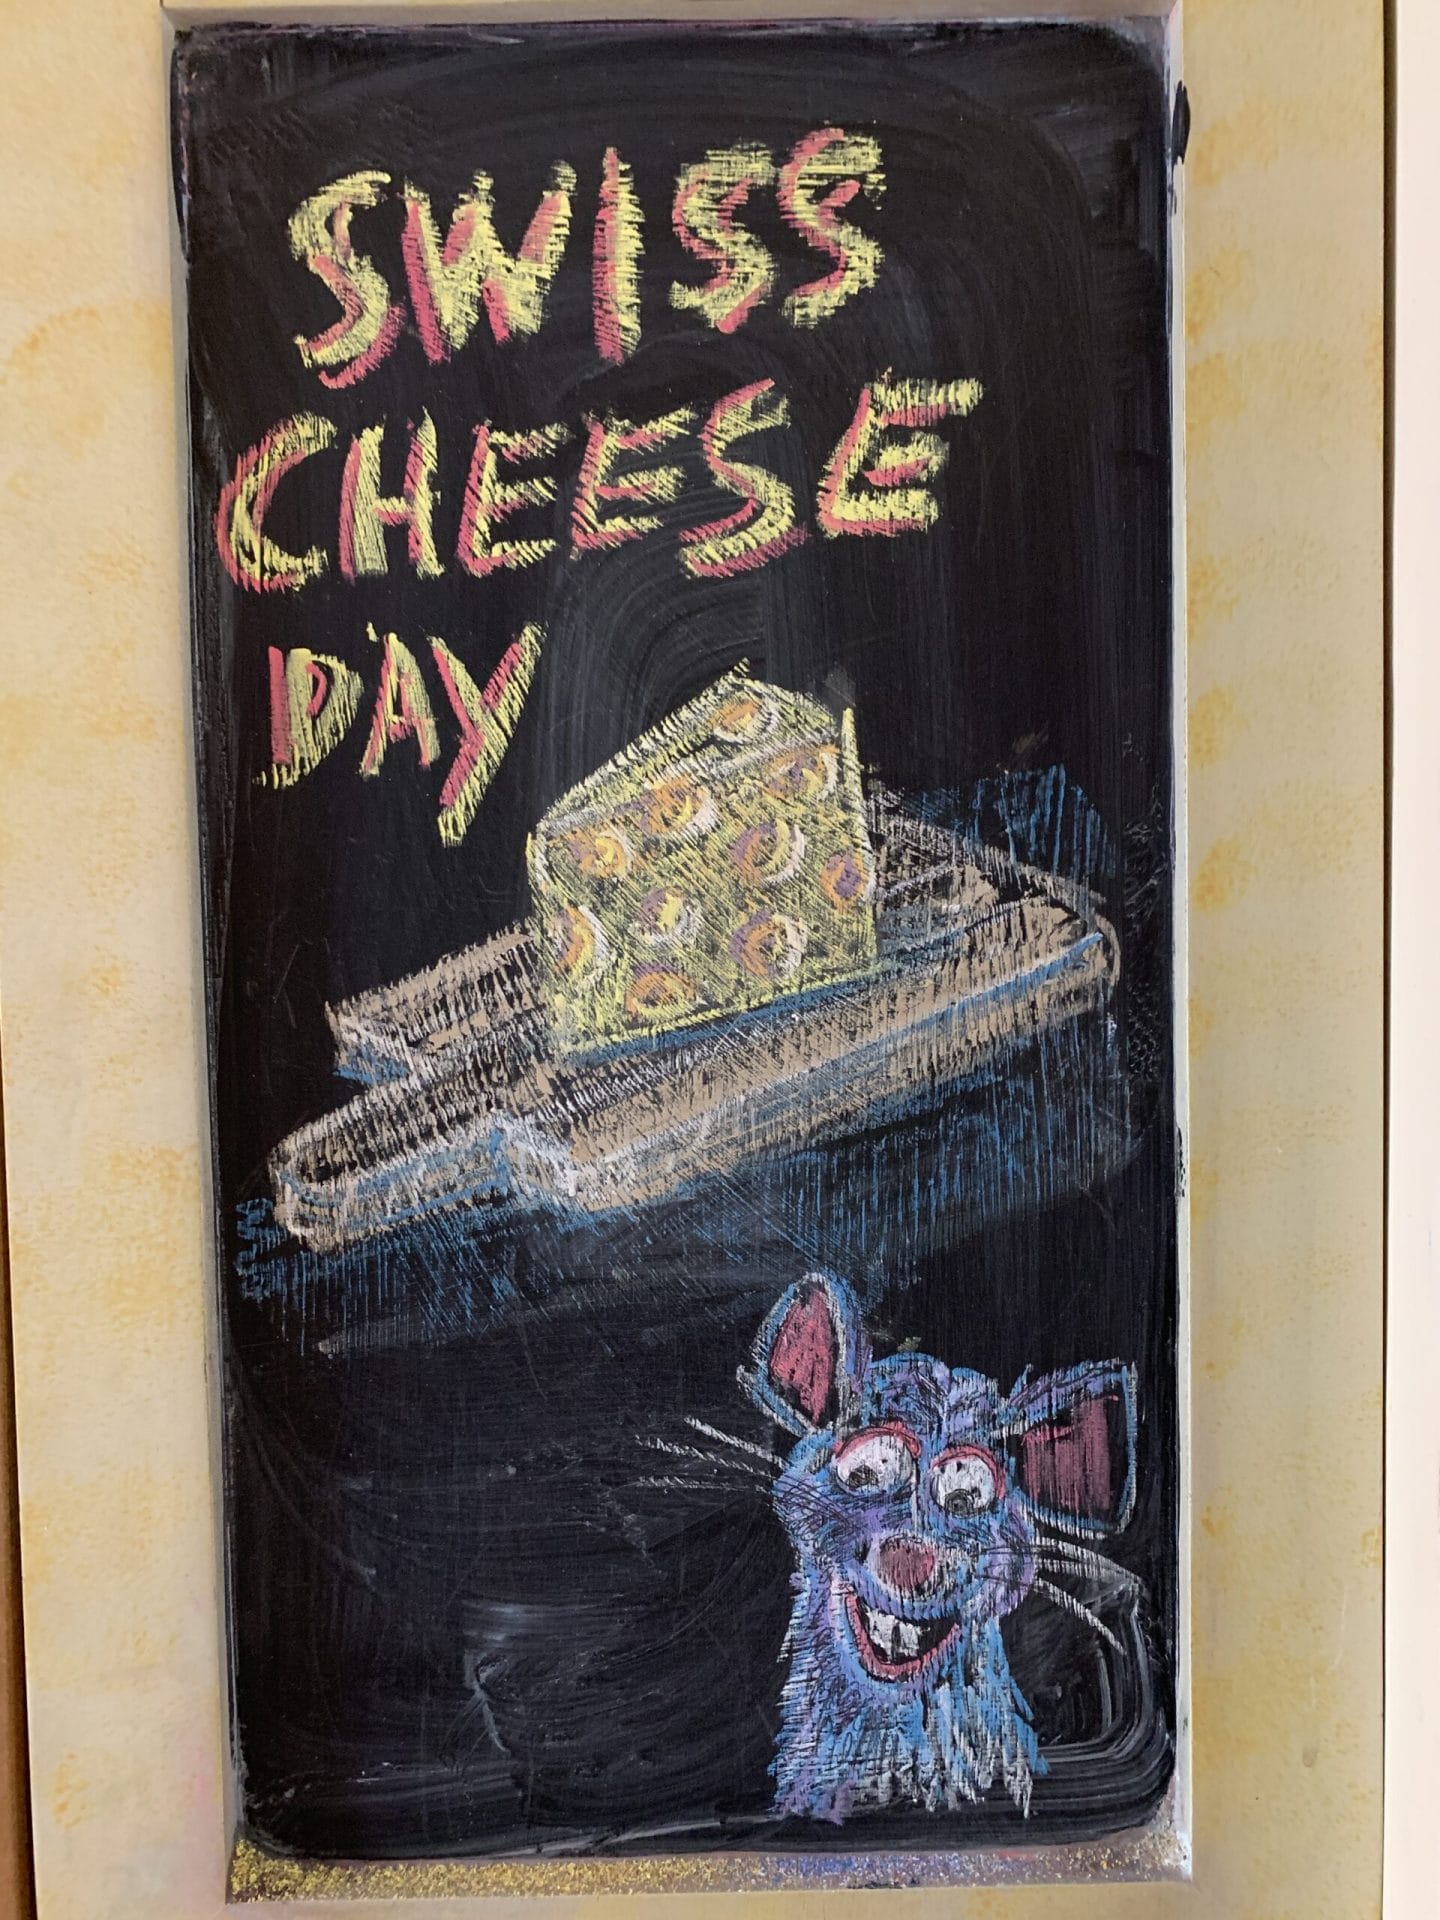 SWISS
CHEESE
DAY